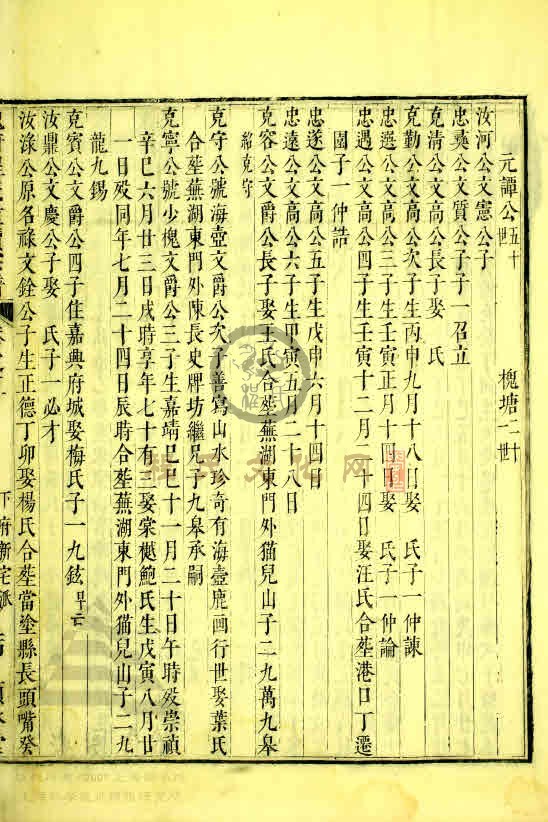 元譚公五十世 槐塘二十一世
汝河公文憲公子
忠奭公文質公子子一召立
克清公文高公長子娶 氏
克勤公文高公次子生丙申九月十八日娶 氏子一仲諫
忠選公文高公三子生壬寅正月十四日娶 氏子一仲論
忠遇公文高公四子生壬寅十二月二十四日娶汪氏合塟港口丁遷
園子一仲誥
忠遂公文高公五子生戊申六月十四日
忠遠公文高公六子生甲寅五月二十八日
克容公文爵公長子娶王氏合塟蕪湖東門外猫兒山子二九萬九皋
繼克守
克守公號海壺文爵公次子善寫山水珍奇有海壺鹿画行世娶葉氏
合塟蕪湖東門外陳長史牌坊繼兄子九皋承嗣
克寧公號少槐文爵公三子生嘉靖己巳十一月二十日午時殁崇禎
辛巳六月廿三日戌時享年七十有三娶棠樾鮑氏生戊寅八月廿
一日殁同年七月二十四日辰時合塟蕪湖東門外猫兒山子二九
龍九錫
克賓公文爵公四子住嘉興府城娶梅氏子一九鉉早亡
汝鼎公文慶公子娶 氏子一必才
汝淥公原名祿文銓公子生正德丁卯娶楊氏合塟當塗縣長頭嘴癸
下府新宅派